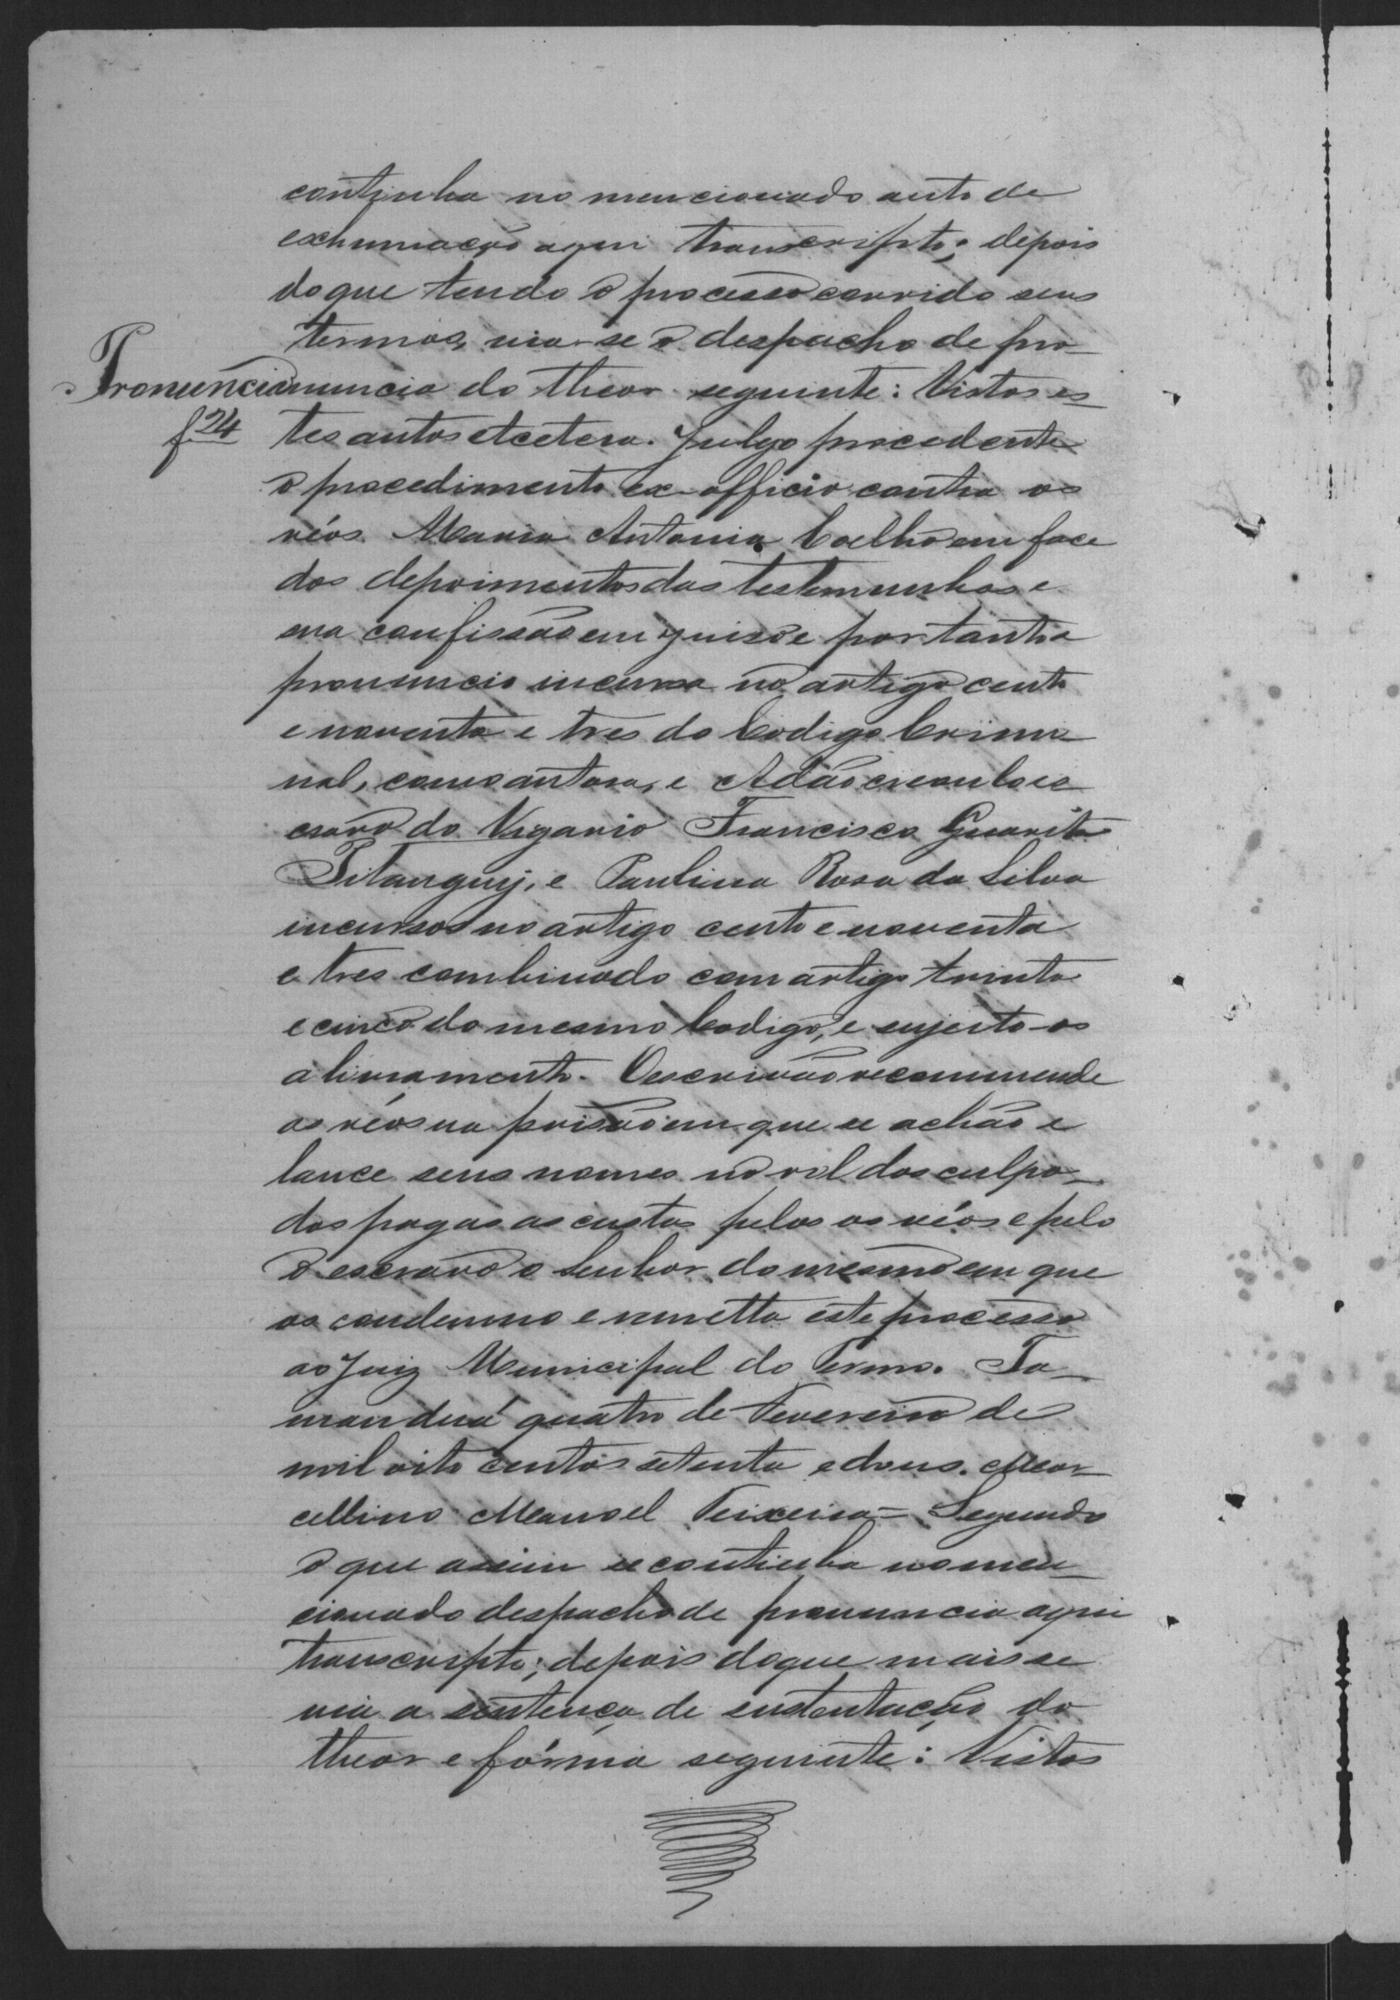 continha no mencionado auto de
exhumação aqui transcripto; depois
do que tendo o processo corrido seus
termos, via-se o despacho de pro-
Pronuncia nuncia do theor seguinte: Vistos es-
f 24 tes autos etcetera. Julgo procedente
o procedimento ex-officio contra os
réos Maria Antonia Coelho em face
dos depoimentos das testemunhas e
sua confissão em juiso e portanto a
pronuncio incursa no artigo cento
e noventa e tres do Codigo Crimi
nal, como autora, e Adão creoulo es
cravo do Vigario Francisco Guarita
Pitanguy, e Paulina Rosa da Silva
incursos no artigo cento e noventa
e tres combinado com artigo trinta
e cinco do mesmo Codigo, e sujeito-os
a livramento. O escrivão recommende
os réos na prisão em que se achão e
lance seus nomes no rol dos culpa-
dos pagas as custas pelos os réos e pelo
o escravo o Senhor do mesmo em que
os condemno e remetta este processo
ao Juiz Municipal do Termo. Ta-
manduá quatro de Fevereiro de
mil oito centos setenta e dous. Mar-
cellino Manoel Teixeira = Segundo
o que assim se continha no men-
cionado despacho de pronuncia aqui
transcripto; depois do que mais se
via a sentença de sustentação do
theor e fórma seguinte: Vistos